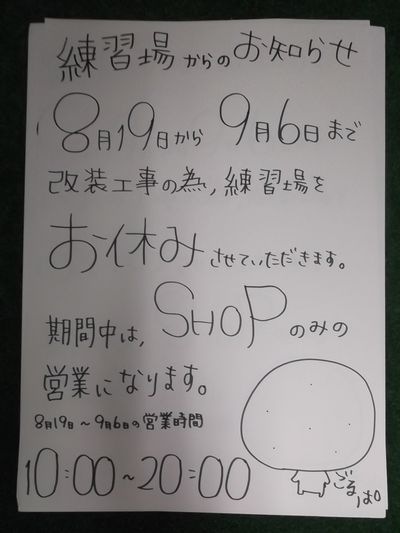 練習場からのお知らせ
8月19日から 9月6日まで
改装工事の為,練習場を
お休みさせていただきます。
期間中は,SHOPのみの
営業になります。
8月19日～9月6日の営業時間
10:00～20:00